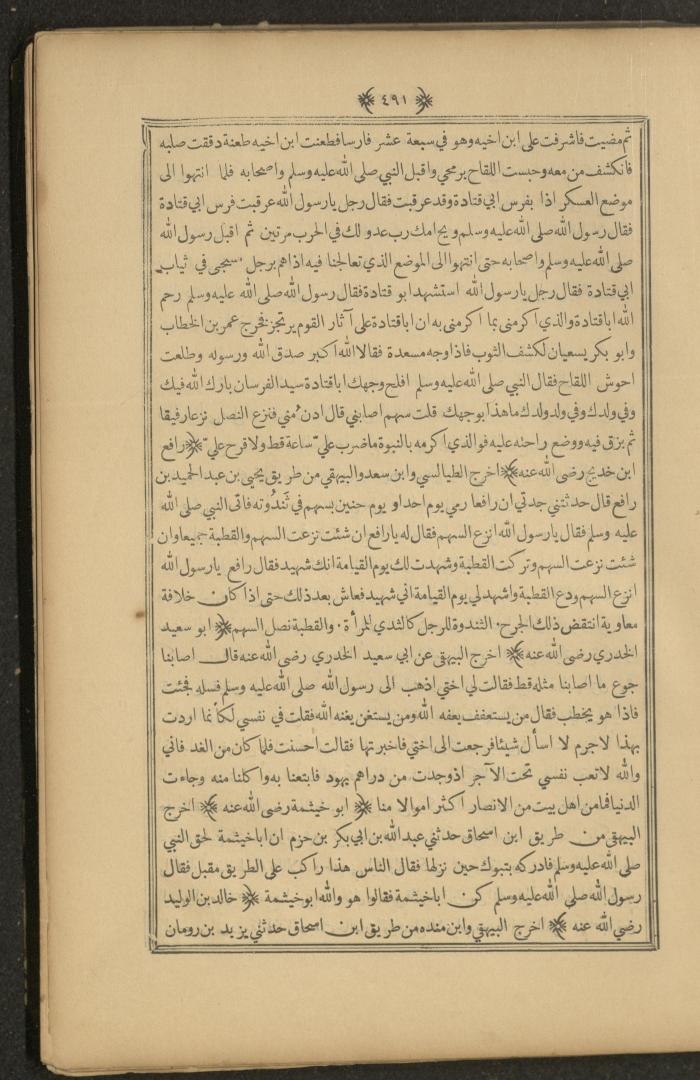 ﴿ ٤٩١ ﴾
ثم مضيت فاشرفت على ابن اخيه وهو في سبعة عشر فارسا فطعنت ابن اخيه طعنة دققت صلبه
فانكشف من معه وحبست اللقاح برمحي واقبل النبي صلى الله عليه وسلم واصحابه فلما انتهوا الى
موضع العسكر اذا بفرس ابي قتادة وقد عرقبت فقال رجل يارسول الله عرقبت فرس ابي قتادة
فقال رسول الله صلى الله عليه وسلم ويح امك رب عدو لك في الحرب مرتين ثم اقبل رسول الله
صلى الله عليه وسلم واصحابه حتى انتهوا الى الموضع الذي تعالجنا فيه اذاهم برجل مسجى في ثياب
ابي قتادة فقال رجل يارسول الله استشهد ابو قتادة فقال رسول الله صلى الله عليه وسلم رحم
الله اباقتادة والذي اكرمني بما اكرمني به ان اباقتادة على آثار القوم يرتجز فخرج عمر بن الخطاب
وابو بكر يسعيان لكشف الثوب فاذا وجه مسعدة فقالا الله اكبر صدق الله ورسوله وطلعت
احوش اللقاح فقال النبي صلى الله عليه وسلم افلح وجهك اباقتادة سيد الفرسان بارك الله فيك
وفي ولدك وفي ولد ولدك ماهذا بوجهك قلت سهم اصابني قال ادن مني فنزع النصل نزعا رفيقا
ثم بزق فيه ووضع راحته عليه فوالذي اكرمه بالنبوة ماضرب عليّ ساعة قط ولاقرح عليّ ﴿ رافع
ابن خديج رضى الله عنه ﴾ اخرج الطيالسي وابن سعد والبيهقي من طريق يحيى بن عبد الحميد بن
رافع قال حدثتني جدتي ان رافعا رمي يوم احد او يوم حنين بسهم في ثَندُوته فاتى النبي صلى الله
عليه وسلم فقال يارسول الله انزع السهم فقال له يارافع ان شئت نزعت السهم والقطبة جميعا وان
شئت نزعت السهم وتركت القطبة وشهدت لك يوم القيامة انك شهيد فقال رافع يارسول الله
انزع السهم ودع القطبة واشهد لي يوم القيامة اني شهيد فعاش بعد ذلك حتى اذا كان خلافة
معاوية انتقض ذلك الجرح. الثندوة للرجل كالثدي للمرأة. والقطبة نصل السهم ﴿ ابو سعيد
الخدري رضى الله عنه ﴾ اخرج البيهقي عن ابي سعيد الخدري رضى الله عنه قال اصابنا
جوع ما اصابنا مثله قط فقالت لي اختي اذهب الى رسول الله صلى الله عليه وسلم فسله فجئت
فاذا هو يخطب فقال من يستعفف يعفه الله ومن يستغن يغنه الله فقلت في نفسي لكأنما اردت
بهذا لاجرم لا اسأل شيئا فرجعت الى اختي فاخبرتها فقالت احسنت فلما كان من الغد فاني
والله لاتعب نفسي تحت الآجر اذ وجدت من دراهم يهود فابتعنا به واكلنا منه وجاءت
الدنيا فمامن اهل بيت من الانصار اكثر اموالا منا ﴿ ابو خيثمة رضى الله عنه ﴾ اخرج
البيهقي من طريق ابن اسحاق حدثني عبد الله بن ابي بكر بن حزم ان اباخيثمة لحق النبي
صلى الله عليه وسلم فادركه بتبوك حين نزلها فقال الناس هذا راكب على الطريق مقبل فقال
رسول الله صلى الله عليه وسلم كن اباخيثمة فقالوا هو والله ابو خيثمة ﴿ خالد بن الوليد
رضي الله عنه ﴾ اخرج البيهقي وابن منده من طريق ابن اسحاق حدثني يزيد بن رومان